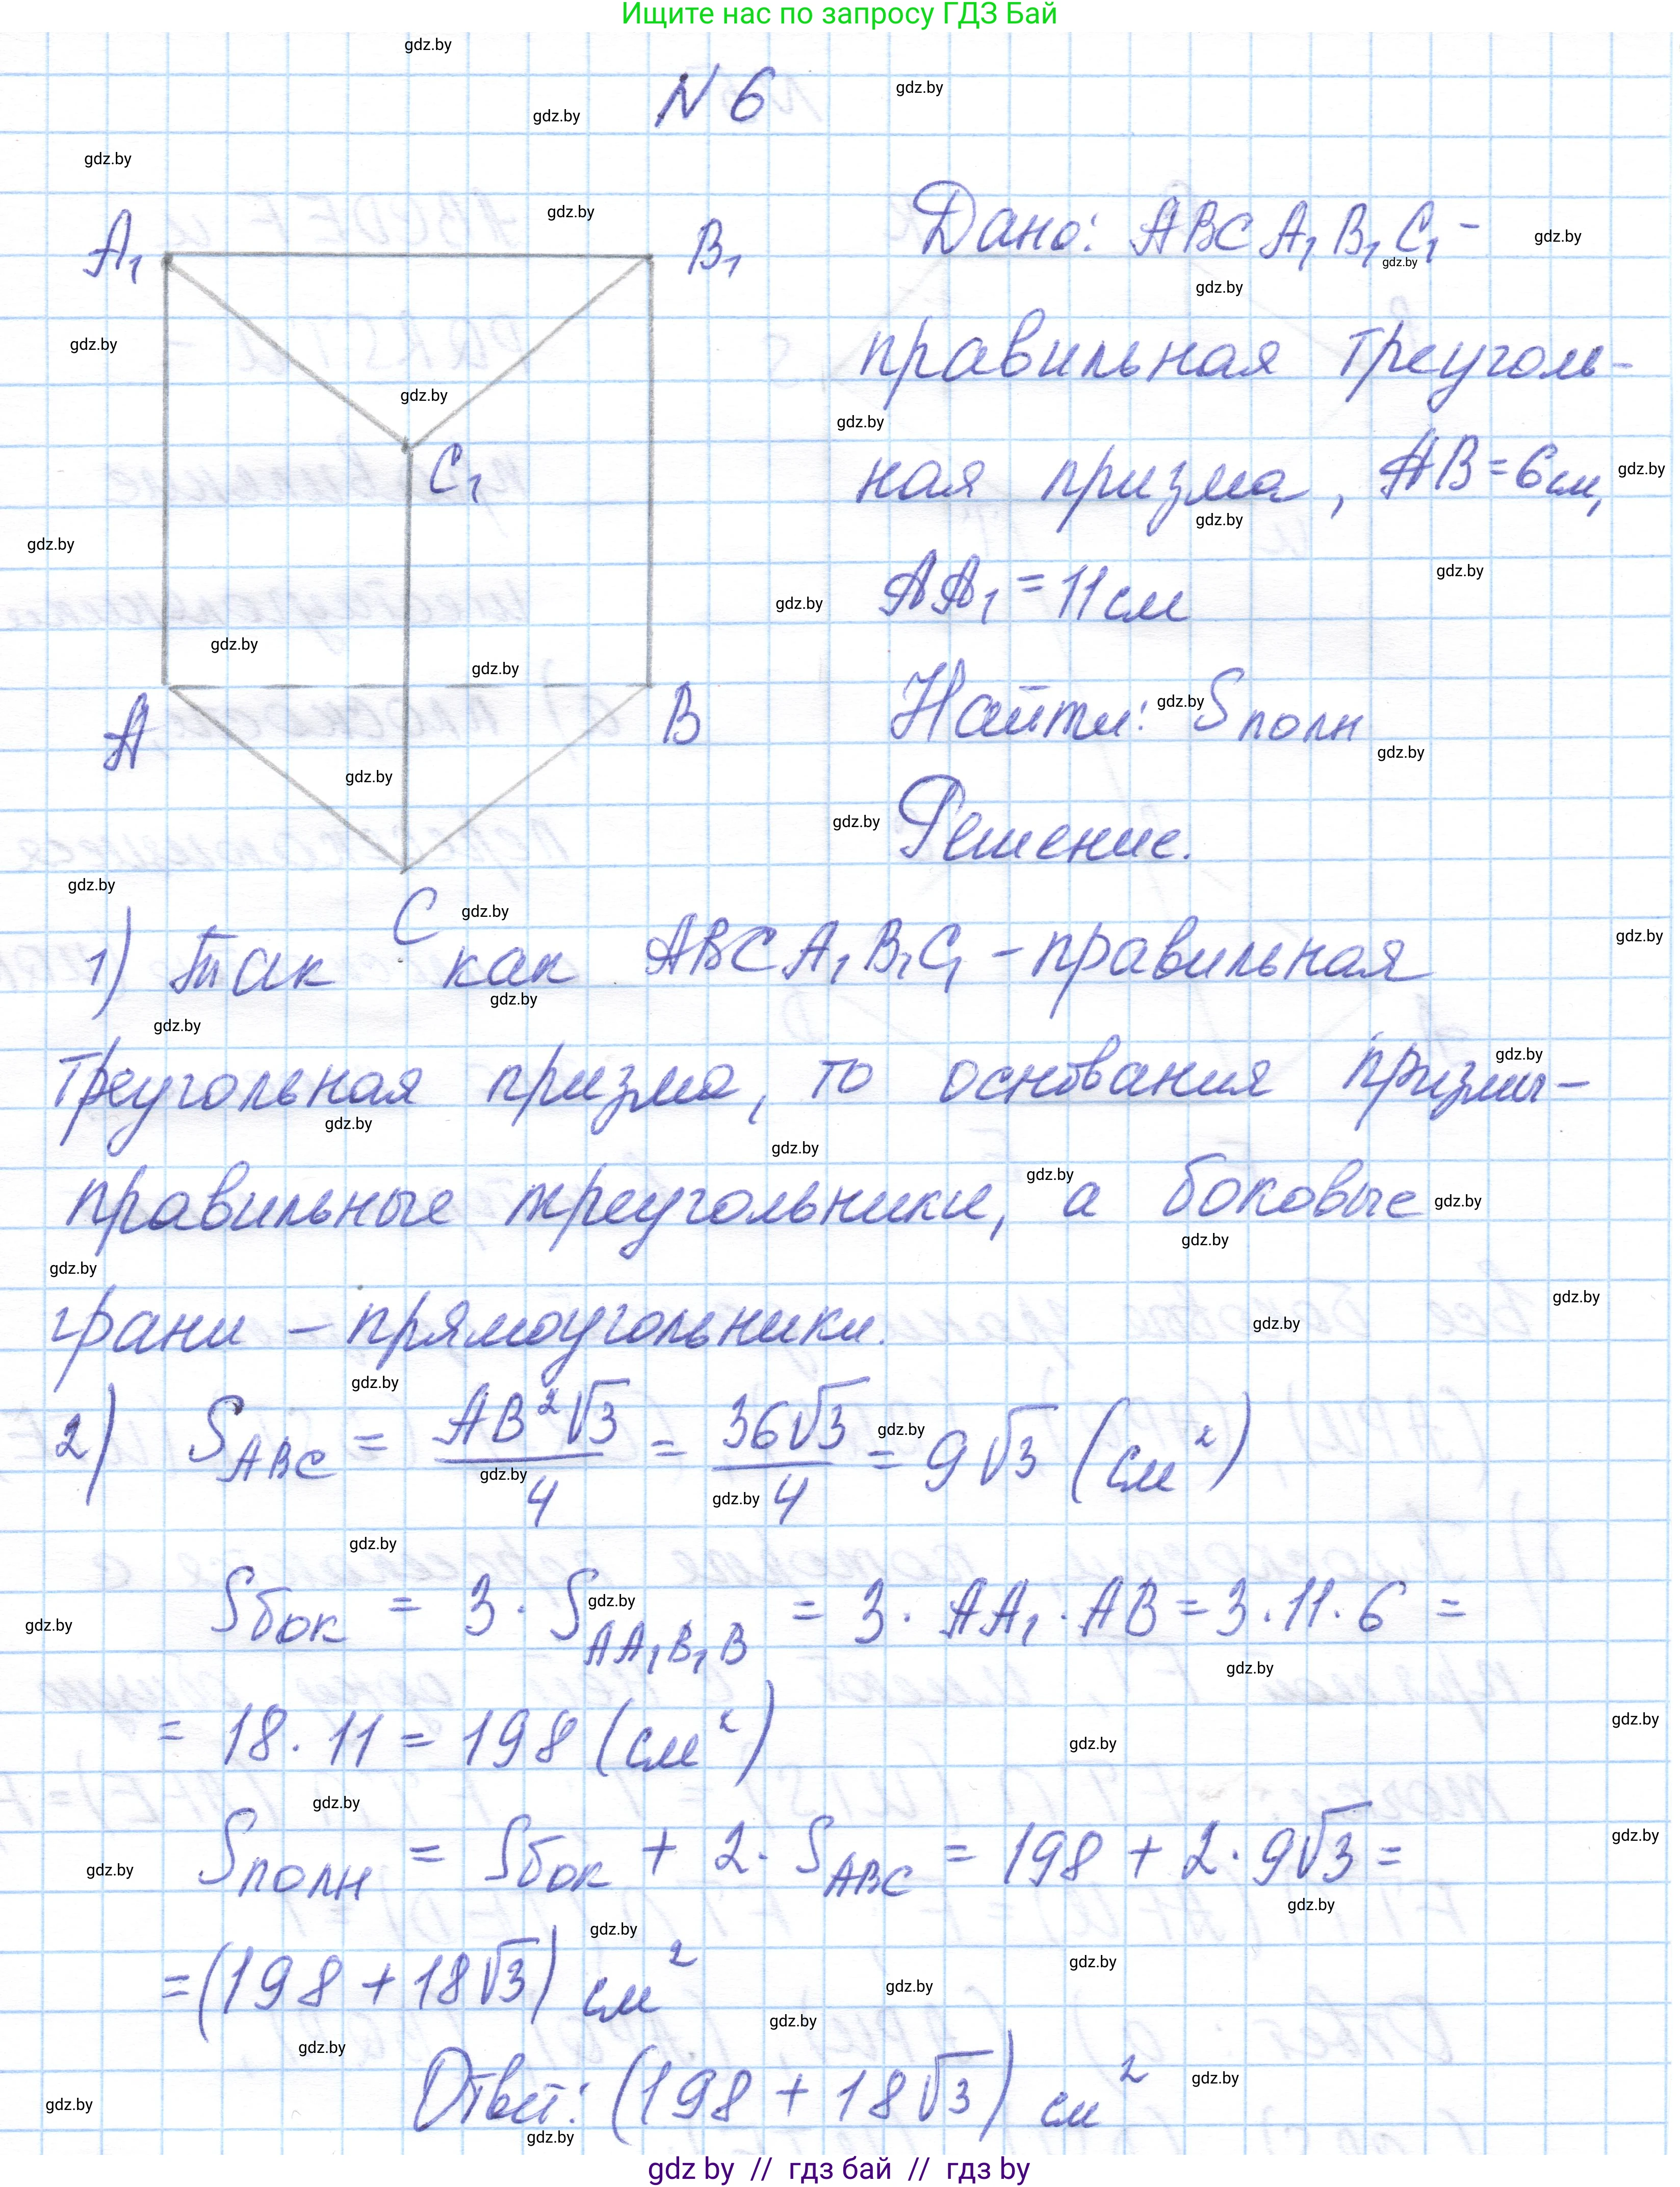 Ищите нас по запросу ГДЗ Бай
N 6
A₁
B₁
C₁
A
B
C
Дано: ABCA₁B₁C₁ -
правильная треуголь-
ная призма, AB = 6 см,
AA₁ = 11 см
Найти: Sполн
Решение.
1) Так как ABCA₁B₁C₁ - правильная
треугольная призма, то основания призмы -
правильные треугольники, а боковые
грани - прямоугольники.
2) S_ABC = AB²√3/4 = 36√3/4 = 9√3 (см²)
Sбок = 3 · S_AA₁B₁B = 3 · AA₁ · AB = 3 · 11 · 6 =
= 18 · 11 = 198 (см²)
Sполн = Sбок + 2 · S_ABC = 198 + 2 · 9√3 =
= (198 + 18√3) см²
Ответ: (198 + 18√3) см²
gdz by // гдз бай // гдз by